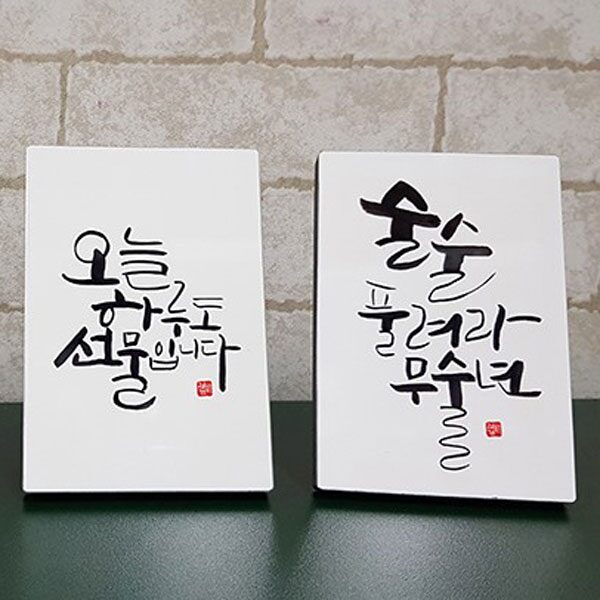 오늘
하루도
선물입니다
술술
풀려라
무술년